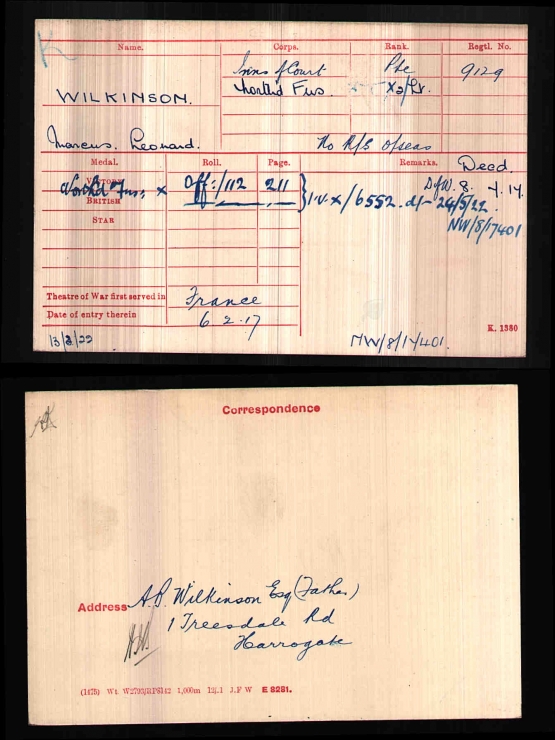 K
Name. Corps. Rank. Regtl. No.
WILKINSON. Inns of Court Pte 9129
Northd Fus. X2/Lt.
Marcus. Leonard. No R/S O/seas
Medal. Roll. Page. Remarks. Decd.
VICTORY Northd Fus; x Off:/112 211 D of W. 8. 4. 17.
BRITISH 1.V.X/6552. d/- 24/5/22.
STAR NW/8/17401
Theatre of War first served in France
Date of entry therein 6.2.17 K. 1380
13/3/22 NW/8/17401.
Correspondence
Address A.B. Wilkinson Esq (Father)
1 Treesdale Rd
Harrogate
(1475) Wt W2793/RP8142 1,000m J.F W E 8281.